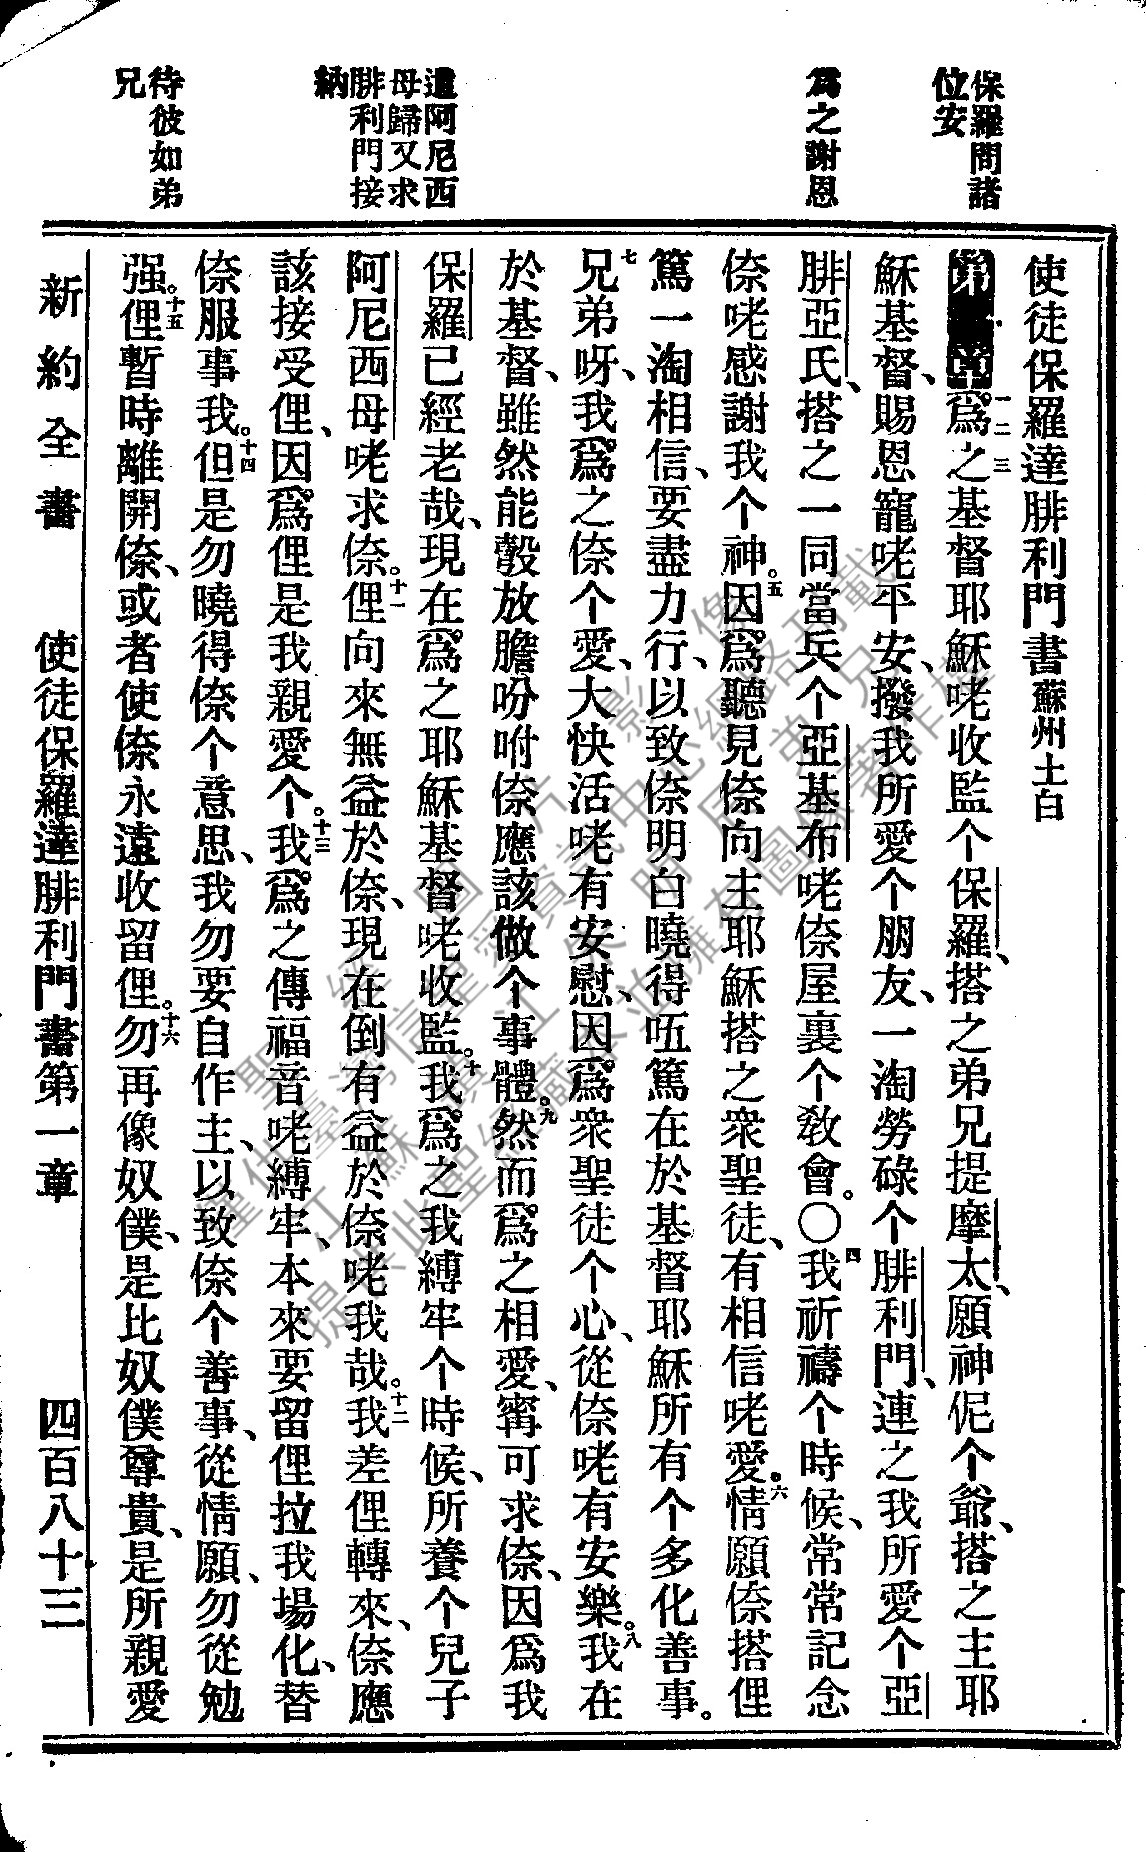 保羅問諸
位安
爲之謝恩
遣阿尼西
母歸又求
腓利門接
納
待彼如弟
兄
使徒保羅達腓利門書蘇州土白
第一章一二三爲之基督耶穌咾收監个保羅、搭之弟兄提摩太、願神伲个爺、搭之主耶
穌基督、賜恩寵咾平安、撥我所愛个朋友、一淘勞碌个腓利門、連之我所愛个亞
腓亞氏、搭之一同當兵个亞基布咾倷屋裏个敎會。〇四我祈禱个時候、常常記念
倷咾感謝我个神。五因爲聽見倷向主耶穌搭之衆聖徒、有相信咾愛。六情願倷搭俚
篤一淘相信、要盡力行、以致倷明白曉得㕶篤在於基督耶穌所有个多化善事。
七兄弟呀、我爲之倷个愛、大快活咾有安慰、因爲衆聖徒个心、從倷咾有安樂。八我在
於基督、雖然能彀放膽吩咐倷應該做个事體。九然而爲之相愛、寗可求倷、因爲我
保羅已經老哉、現在爲之耶穌基督咾收監。十我爲之我縛牢个時候、所養个兒子
阿尼西母咾求倷。十一俚向來無益於倷、現在倒有益於倷咾我哉。十二我差俚轉來、倷應
該接受俚、因爲俚是我親愛个。十三我爲之傳福音咾縛牢、本來要留俚拉我場化、替
倷服事我。十四但是勿曉得倷个意思、我勿要自作主、以致倷个善事、從情願、勿從勉
强。十五俚暫時離開倷、或者使倷永遠收留俚。十六勿再像奴僕、是比奴僕尊貴、是所親愛
新約全書　使徒保羅達腓利門書第一章　四百八十三